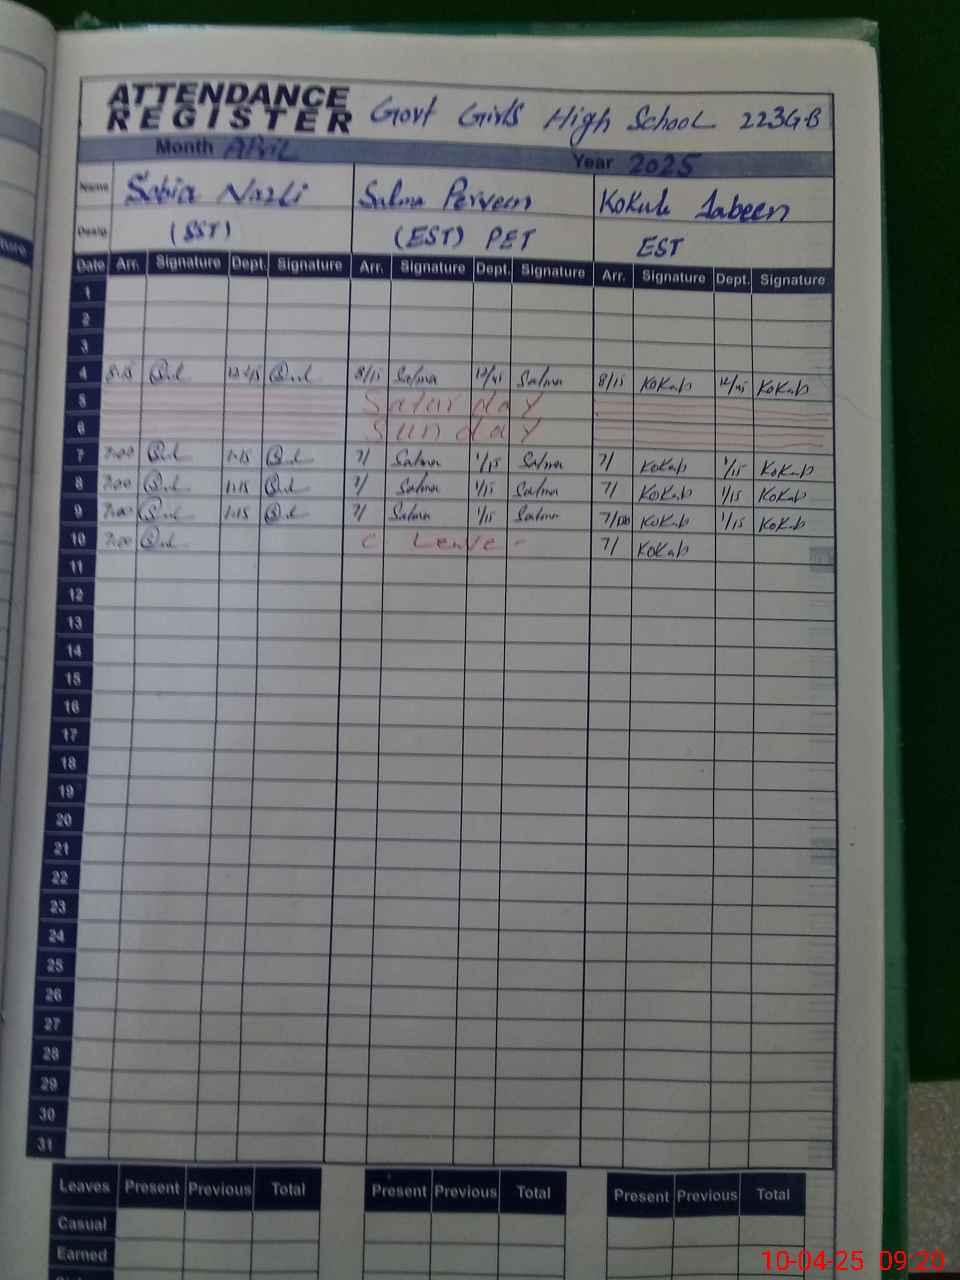 ATTENDANCE
REGISTER Govt Girls High School 223GB
Month April Year 2025
Name Sobia Nazli Salma Perveen Kokab Jabeen
Desig. (SST) (EST) PET EST
Date Arr. Signature Dept. Signature Arr. Signature Dept. Signature Arr. Signature Dept. Signature
1
2
3
4 8:15 12:45 8/15 Salma 12/45 Salma 8/15 Kokab 12/45 Kokab
5 Saturday
6 Sunday
7 7:00 1:15 7/ Salma 1/15 Salma 7/ Kokab 1/15 Kokab
8 7:00 1:15 7/ Salma 1/15 Salma 7/ Kokab 1/15 Kokab
9 7:00 1:15 7/ Salma 1/15 Salma 7/00 Kokab 1/15 Kokab
10 7:00 C Leave - 7/ Kokab
11
12
13
14
15
16
17
18
19
20
21
22
23
24
25
26
27
28
29
30
31
Leaves Present Previous Total Present Previous Total Present Previous Total
Casual
Earned
10-04-25 09:20